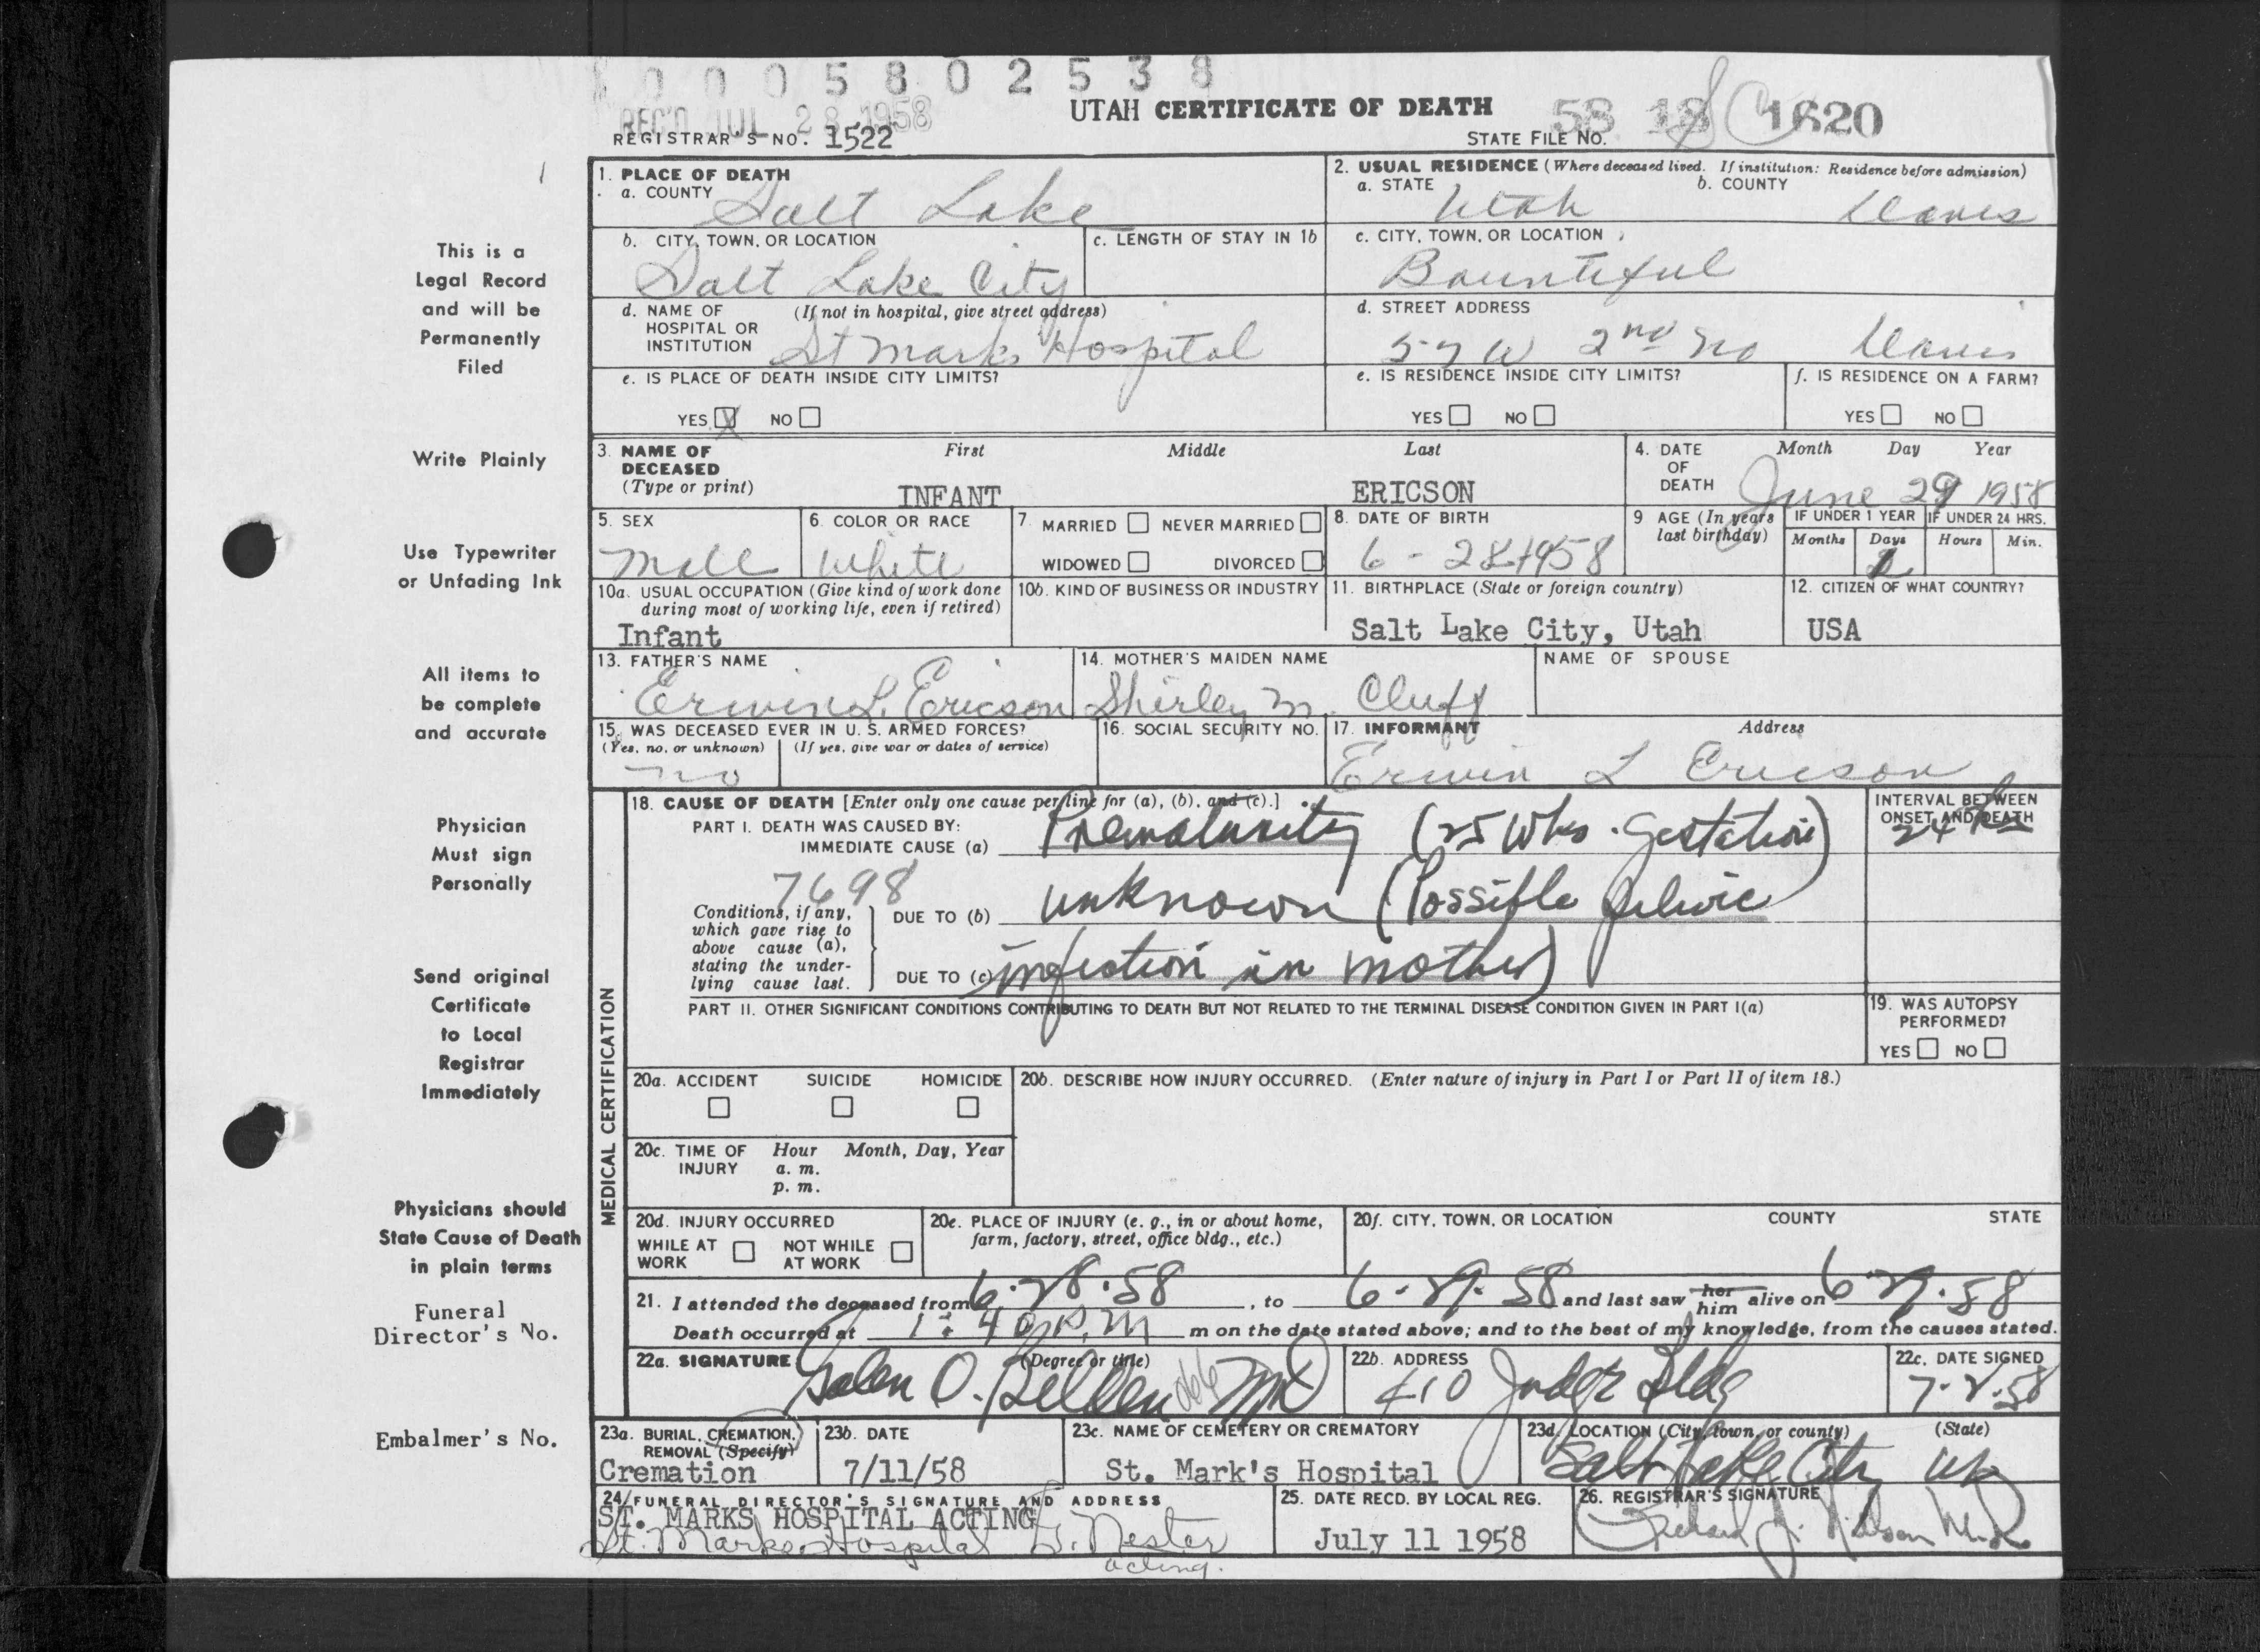 0 0 0 5 8 0 2 5 3 8
REC'D JUL 28 1958
UTAH CERTIFICATE OF DEATH
58 18 1620
REGISTRAR'S NO. 1522
STATE FILE NO.
1. PLACE OF DEATH
a. COUNTY Salt Lake
2. USUAL RESIDENCE (Where deceased lived. If institution: Residence before admission)
a. STATE Utah b. COUNTY Davis
b. CITY, TOWN, OR LOCATION Salt Lake City
c. LENGTH OF STAY IN 1b
c. CITY, TOWN, OR LOCATION Bountiful
d. NAME OF HOSPITAL OR INSTITUTION (If not in hospital, give street address) St Marks Hospital
d. STREET ADDRESS 57 W 2nd No Davis
e. IS PLACE OF DEATH INSIDE CITY LIMITS?
YES X NO
e. IS RESIDENCE INSIDE CITY LIMITS?
YES NO
f. IS RESIDENCE ON A FARM?
YES NO
3. NAME OF DECEASED (Type or print)
First Middle Last
INFANT ERICSON
4. DATE OF DEATH Month Day Year
June 29 1958
5. SEX Male
6. COLOR OR RACE White
7. MARRIED NEVER MARRIED
WIDOWED DIVORCED
8. DATE OF BIRTH 6-28-1958
9 AGE (In years last birthday)
IF UNDER 1 YEAR IF UNDER 24 HRS.
Months Days Hours Min.
10a. USUAL OCCUPATION (Give kind of work done during most of working life, even if retired)
Infant
10b. KIND OF BUSINESS OR INDUSTRY
11. BIRTHPLACE (State or foreign country)
Salt Lake City, Utah
12. CITIZEN OF WHAT COUNTRY?
USA
13. FATHER'S NAME
Erwin L. Ericson
14. MOTHER'S MAIDEN NAME
Shirley M. Cluff
NAME OF SPOUSE
15. WAS DECEASED EVER IN U. S. ARMED FORCES?
(Yes, no, or unknown) (If yes, give war or dates of service)
no
16. SOCIAL SECURITY NO.
17. INFORMANT Address
Erwin L Ericson
18. CAUSE OF DEATH [Enter only one cause per line for (a), (b), and (c).]
PART I. DEATH WAS CAUSED BY:
IMMEDIATE CAUSE (a) Prematurity (25 Wks. Gestation)
INTERVAL BETWEEN ONSET AND DEATH
24 hrs
7698
Conditions, if any, which gave rise to above cause (a), stating the underlying cause last.
DUE TO (b) unknown (Possible pelvic
DUE TO (c) infection in mother)
PART II. OTHER SIGNIFICANT CONDITIONS CONTRIBUTING TO DEATH BUT NOT RELATED TO THE TERMINAL DISEASE CONDITION GIVEN IN PART I(a)
19. WAS AUTOPSY PERFORMED?
YES NO
20a. ACCIDENT SUICIDE HOMICIDE
20b. DESCRIBE HOW INJURY OCCURRED. (Enter nature of injury in Part I or Part II of item 18.)
20c. TIME OF INJURY Hour Month, Day, Year
a. m.
p. m.
20d. INJURY OCCURRED
WHILE AT WORK NOT WHILE AT WORK
20e. PLACE OF INJURY (e. g., in or about home, farm, factory, street, office bldg., etc.)
20f. CITY, TOWN, OR LOCATION COUNTY STATE
21. I attended the deceased from 6.28.58, to 6-29.58 and last saw her him alive on 6.29.58
Death occurred at 1:40 P.M m on the date stated above; and to the best of my knowledge, from the causes stated.
22a. SIGNATURE (Degree or title)
Galen O. Belden MD
22b. ADDRESS
410 Judge Bldg
22c. DATE SIGNED
7.2.58
23a. BURIAL, CREMATION, REMOVAL (Specify)
Cremation
23b. DATE
7/11/58
23c. NAME OF CEMETERY OR CREMATORY
St. Mark's Hospital
23d. LOCATION (City, town, or county) (State)
Salt Lake City
24 FUNERAL DIRECTOR'S SIGNATURE AND ADDRESS
ST. MARKS HOSPITAL ACTING
St. Marks Hospital D. Nester
acting.
25. DATE RECD. BY LOCAL REG.
July 11 1958
26. REGISTRAR'S SIGNATURE
MEDICAL CERTIFICATION
This is a
Legal Record
and will be
Permanently
Filed
Write Plainly
Use Typewriter
or Unfading Ink
All items to
be complete
and accurate
Physician
Must sign
Personally
Send original
Certificate
to Local
Registrar
Immediately
Physicians should
State Cause of Death
in plain terms
Funeral
Director's No.
Embalmer's No.